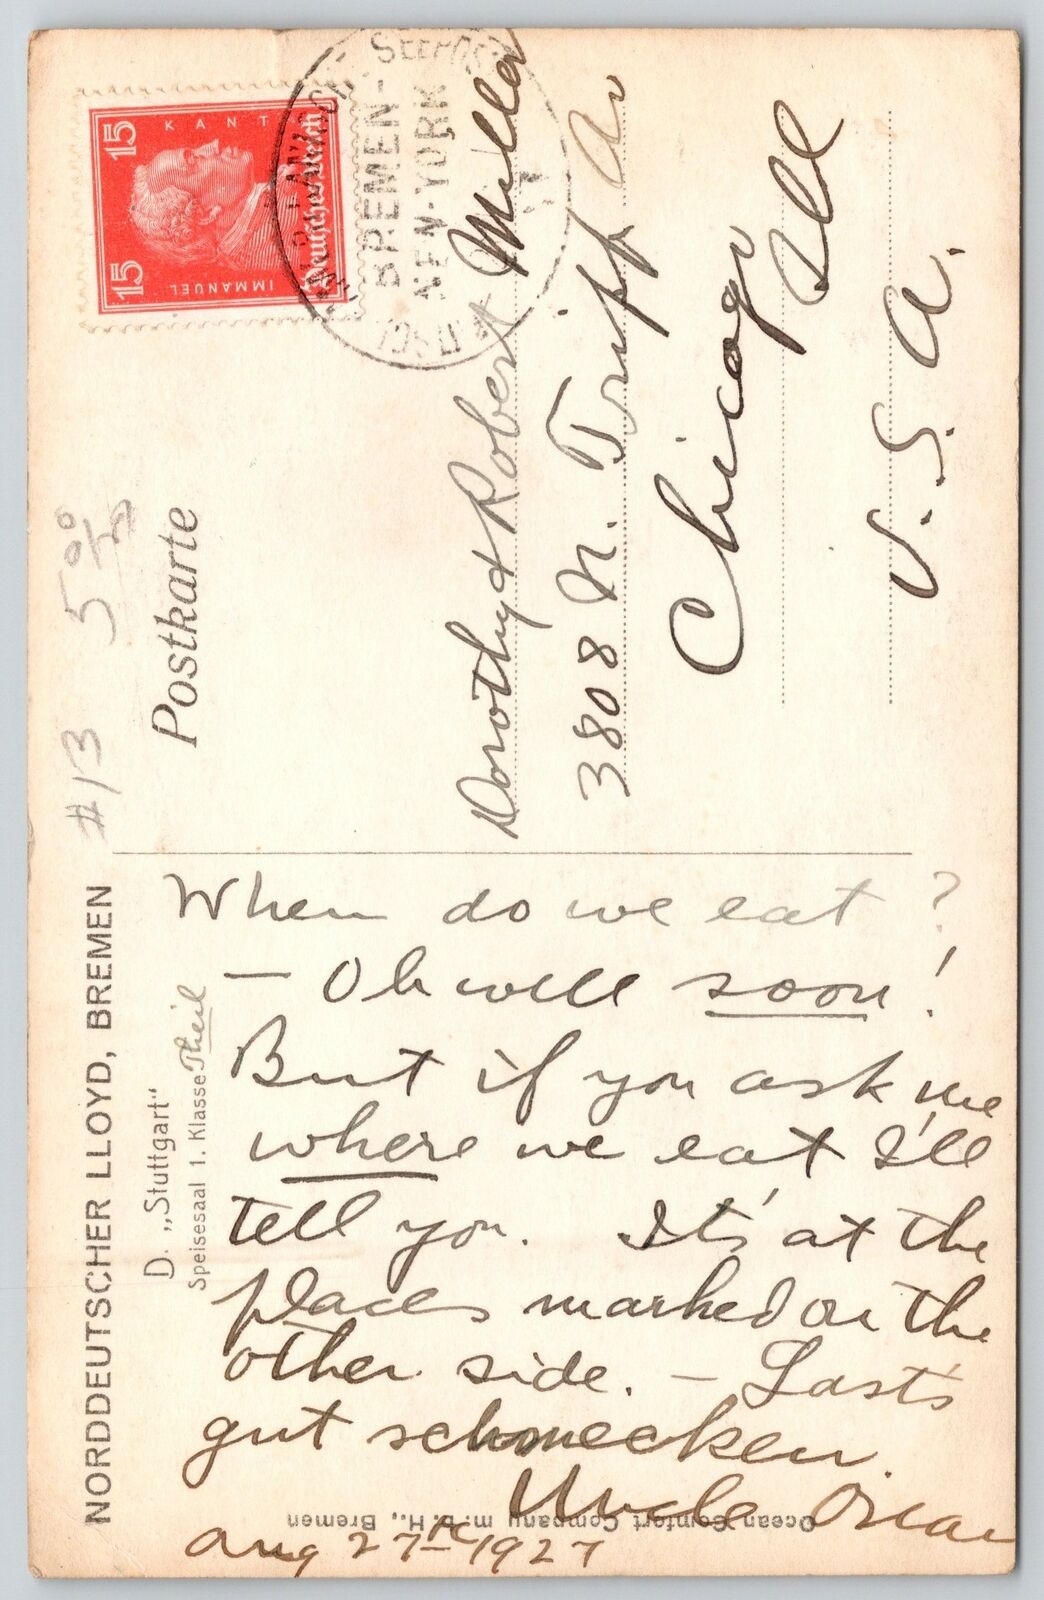 NORDDEUTSCHER LLOYD, BREMEN
D. „Stuttgart"
Speisesaal 1. Klasse Theil
#13 5 00
Postkarte
15 KANT 15
IMMANUEL
Deutsches Reich
SEEPOST
BREMEN-
NEW-YORK
When do we eat?
- Oh well soon!
But if you ask me
where we eat I'll
tell you. It's at the
places marked on the
other side. - Last's
gut schmecken.
Uncle Oscar
Aug 27th 1927
Dorothy & Robert Miller
3808 N. Tripp Av
Chicago
Ill
U.S.A.
Ocean Comfort Company m. b. H., Bremen